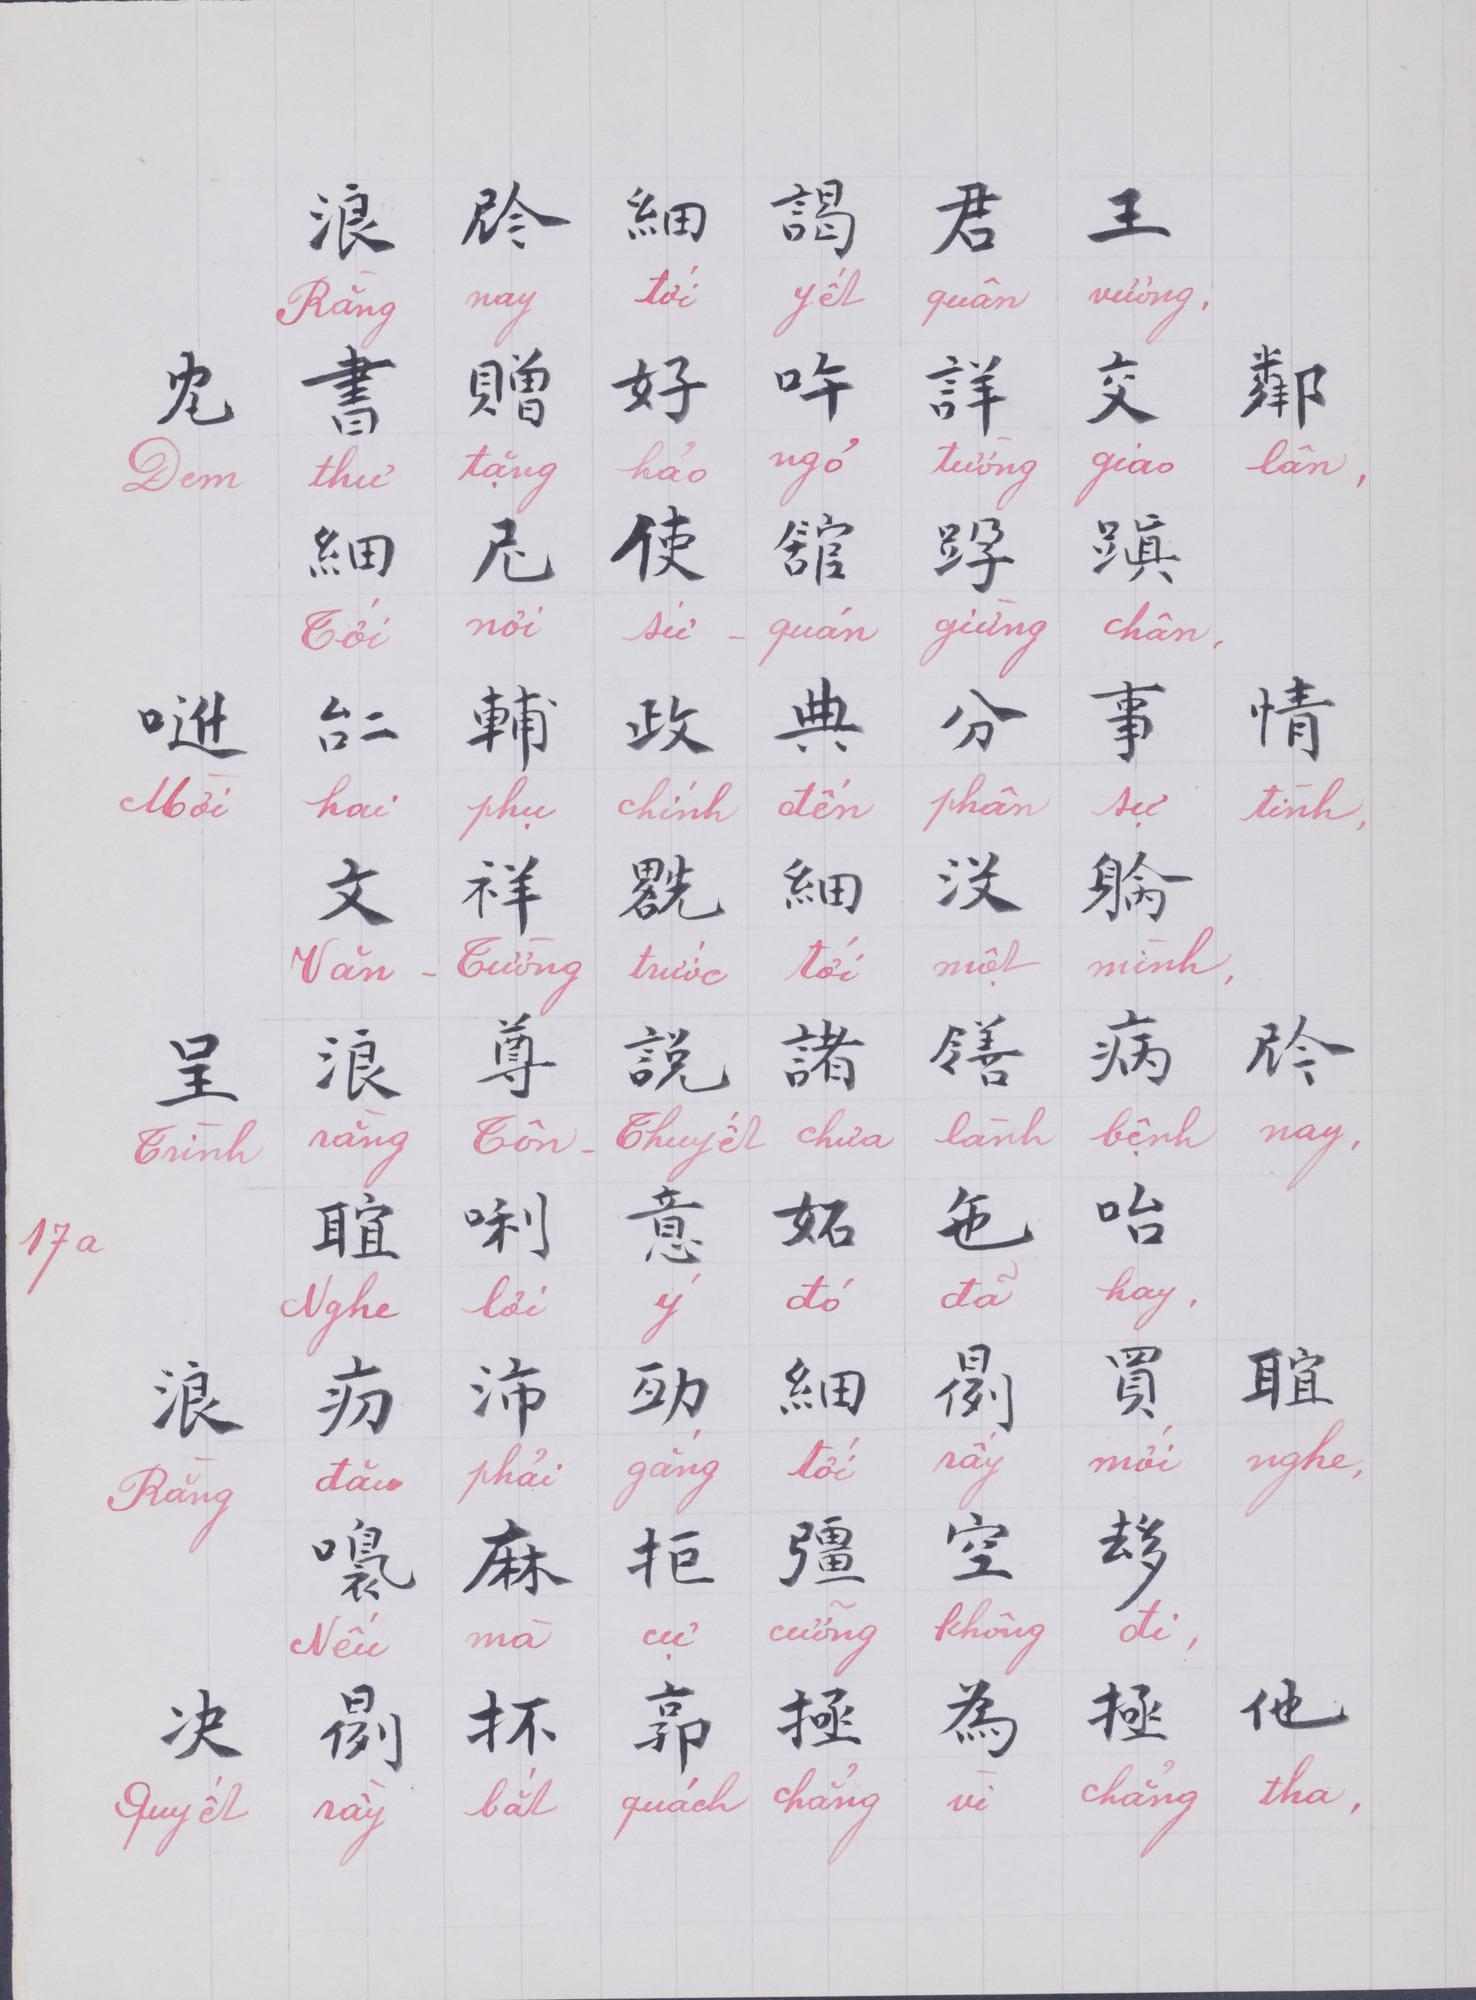 浪 𫢩 細 謁 君 王
Rằng nay tới yết quân vương,
書 贈 好 吘 詳 交 鄰
Đem thư tặng hảo ngỏ tường giao lân,
細 尼 使 舘 蹎
Tới nơi sứ - quán giừng chân,
𠄩 輔 政 典 分 事 情
Mời hai phụ chính đến phân sự tình,
文 祥 細 没 躺
Văn - Tường trước tới một mình,
呈 浪 尊 説 諸 病 𫢩
Trình rằng Tôn - Thuyết chưa lành bệnh nay,
17a
𦖑 唎 意 妬 㐌 咍
Nghe lời ý đó đã hay,
浪 沛 細 買 𦖑
Rằng đău phải gắng tới rầy mới nghe,
麻 拒 彊 空 𠫾
Nếu mà cự cưỡng không đi,
决 抔 郭 拯 為 拯 他
Quyết rày bắt quách chẳng vì chẳng tha,